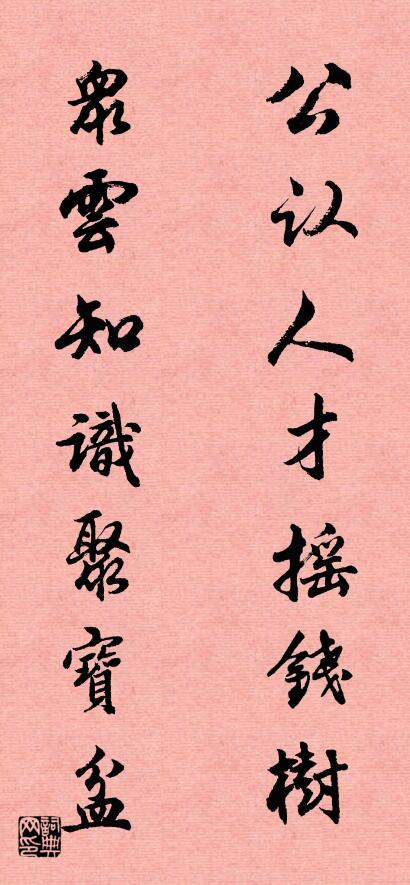 公认人才摇錢樹
衆雲知識聚寶盆
詞典网印